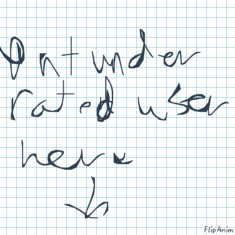 Put under
rated user
here
FlipAnim